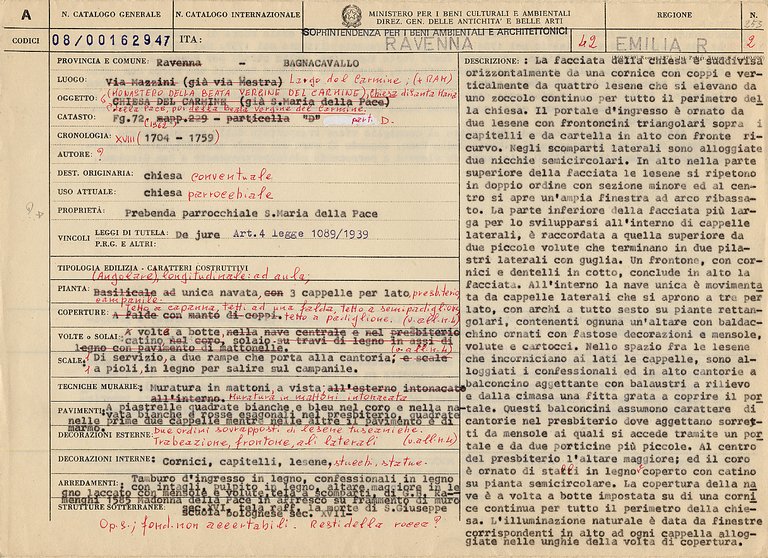 A
N. CATALOGO GENERALE
N. CATALOGO INTERNAZIONALE
MINISTERO PER I BENI CULTURALI E AMBIENTALI
DIREZ. GEN. DELLE ANTICHITA' E BELLE ARTI
REGIONE
N.
253
CODICI
08/00162947
ITA:
SOPRINTENDENZA PER I BENI AMBIENTALI E ARCHITETTONICI
RAVENNA
42
EMILIA R
2
PROVINCIA E COMUNE: Ravenna - BAGNACAVALLO
LUOGO: Via Mazzini (già via Mestra) Largo del Carmine, (+RAM)
(MONASTERO DELLA BEATA VERGINE DEL CARMINE), Chiesa di Santa Maria
OGGETTO: CHIESA DEL CARMINE (già S.Maria della Pace)
della Pace, poi della Beata Vergine del Carmine.
CATASTO: Fg.72, mapp.229 - particella "D" part. D.
(1862)
CRONOLOGIA: XVIII (1704 - 1759)
AUTORE: ?
DEST. ORIGINARIA: chiesa conventuale
USO ATTUALE: chiesa parrocchiale
PROPRIETÀ: Prebenda parrocchiale S.Maria della Pace
VINCOLI
LEGGI DI TUTELA: De jure Art.4 legge 1089/1939
P.R.G. E ALTRI:
TIPOLOGIA EDILIZIA - CARATTERI COSTRUTTIVI
(Angolare), longitudinale: ad aula;
PIANTA: Basilicale ad unica navata, con 3 cappelle per lato, presbiterio
campanile.
Tetto a capanna, tetti ad una falda, tetto a semipadiglione
COPERTURE: A falde con manto di coppi. tetto a padiglione. (v. all. n. 4)
VOLTE o SOLAI: A volta a botte, nella nave centrale e nel presbiterio
catino nel coro, solaio su travi di legno in assi di
legno con pavimento di mattonelle. (v. all. n. 4)
SCALE: Di servizio, a due rampe che porta alla cantoria; e scale
1 a pioli, in legno per salire sul campanile.
TECNICHE MURARIE: Muratura in mattoni, a vista all'esterno intonacate
all'interno. Muratura in mattoni intonacata
PAVIMENTI: A piastrelle quadrate bianche e bleu nel coro e nella na-
vata bianche e rosse esagonali nel presbiterio, quadrate
nelle prime due cappelle mentre nelle altre il pavimento è di
marmo.
Due ordini sovrapposti di lesene tuscaniche.
DECORAZIONI ESTERNE: Trabeazione, frontone, ali laterali (v. all. n. 4)
DECORAZIONI INTERNE: Cornici, capitelli, lesene, stucchi, statue.
ARREDAMENTI: Tamburo d'ingresso in legno, confessionali in legno
con intagli, pulpito in legno, altare maggiore in le-
gno laccato con mensole e volute, tela a scomparti, di G.B. Ra-
menghi 1585 Madonna della Pace in affresco su frammento di muro
sec. XVI, tela raff. la morte di S.Giuseppe
scuola bolognese sec. XVII-
STRUTTURE SOTTERRANEE:
Op.s.; fond. non accertabili. Resti della rocca?
DESCRIZIONE: La facciata della chiesa è suddivisa
orizzontalmente da una cornice con coppi e ver-
ticalmente da quattro lesene che si elevano da
uno zoccolo continuo per tutto il perimetro del
la chiesa. Il portale d'ingresso è ornato da
due lesene con frontoncini triangolari sopra i
capitelli e da cartella in alto con fronte ri-
curvo. Negli scomparti laterali sono alloggiate
due nicchie semicircolari. In alto nella parte
superiore della facciata le lesene si ripetono
in doppio ordine con sezione minore ed al cen-
tro si apre un'ampia finestra ad arco ribassa-
to. La parte inferiore della facciata più lar-
ga per lo svilupparsi all'interno di cappelle
laterali, è raccordata a quella superiore da
due piccole volute che terminano in due pila-
stri laterali con guglia. Un frontone, con cor-
nici e dentelli in cotto, conclude in alto la
facciata. All'interno la nave unica è movimenta
ta da cappelle laterali che si aprono a tre per
lato, con archi a tutto sesto su piante rettan-
golari, contenenti ognuna un'altare con baldac-
chino ornati con fastose decorazioni a mensole,
volute e cartocci. Nello spazio fra le lesene
che incorniciano ai lati le cappelle, sono al-
loggiati i confessionali ed in alto cantorie a
balconcino aggettante con balaustri a rilievo
e dalla cimasa una fitta grata a coprire il por
tale. Questi balconcini assumono carattere di
cantorie nel presbiterio dove aggettano sorret-
ti da mensole ai quali si accede tramite un por
tale e da due porticine più piccole. Al centro
del presbiterio l'altare maggiore; ed il coro
è ornato di stalli in legno coperto con catino
su pianta semicircolare. La copertura della na-
ve è a volta a botte impostata su di una corni
ce continua per tutto il perimetro della chie-
sa. L'illuminazione naturale è data da finestre
corrispondenti in alto ad ogni cappella allog-
giate nelle unghie della volta di copertura.